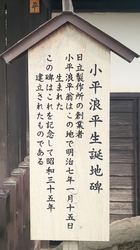 小平浪平生誕地碑
日立製作所の創業者
小平浪平翁はこの地で明治七年一月十五日
生まれた
この碑はこれを記念して昭和三十五年
建立されたものである